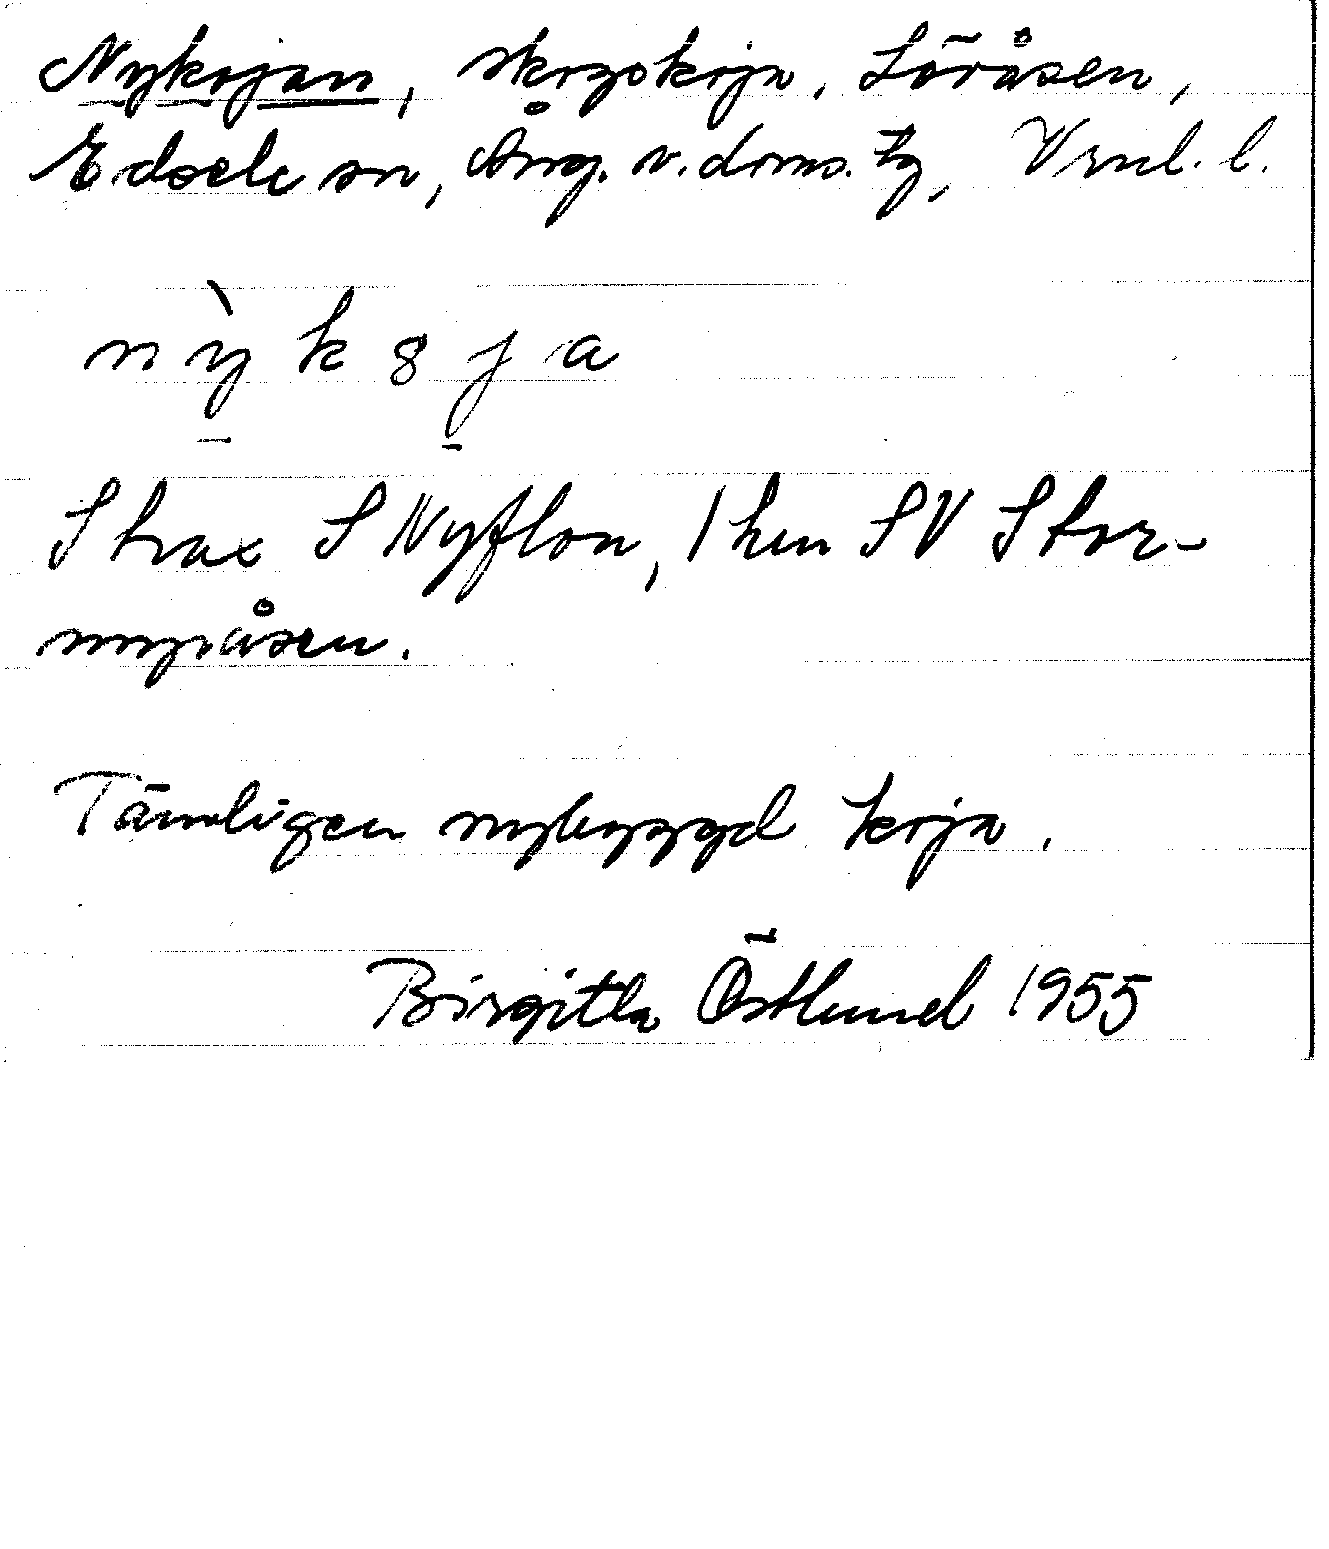 Nykojan, skogskoja, Löråsen,
Edsele sn, Ång. v. doms. tg, Vrnl. l.
nỳk8ja
Strax S Nyflon, 1 km SV Stor-
myråsen.
Tämligen nybyggd koja.
Birgitta Östlund 1955